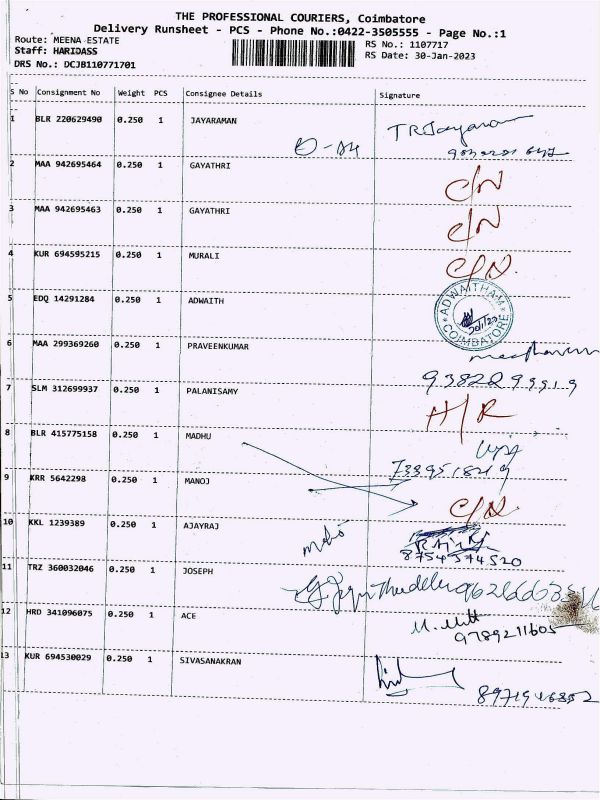 THE PROFESSIONAL COURIERS, Coimbatore
Delivery Runsheet - PCS - Phone No.:0422-3505555 - Page No.:1
Route: MEENA-ESTATE
RS No.: 1107717
Staff: HARIDASS
RS Date: 30-Jan-2023
DRS No.: DCJB110771701
S No Consignment No Weight PCS Consignee Details Signature
1 BLR 220629490 0.250 1 JAYARAMAN TRJayaraman
2 MAA 942695464 0.250 1 GAYATHRI C/N
3 MAA 942695463 0.250 1 GAYATHRI C/N
4 KUR 694595215 0.250 1 MURALI C/N.
5 EDQ 14291284 0.250 1 ADWAITH ADWAITHAM COIMBATORE
6 MAA 299369260 0.250 1 PRAVEENKUMAR
9382299919
7 SLM 312699937 0.250 1 PALANISAMY H/R
8 BLR 415775158 0.250 1 MADHU
7339518219
9 KRR 5642298 0.250 1 MANOJ C/N.
10 KKL 1239389 0.250 1 AJAYRAJ
8754374520
11 TRZ 360032046 0.250 1 JOSEPH
12 HRD 341096075 0.250 1 ACE
9789211605
13 KUR 694530029 0.250 1 SIVASANAKRAN
8971946852